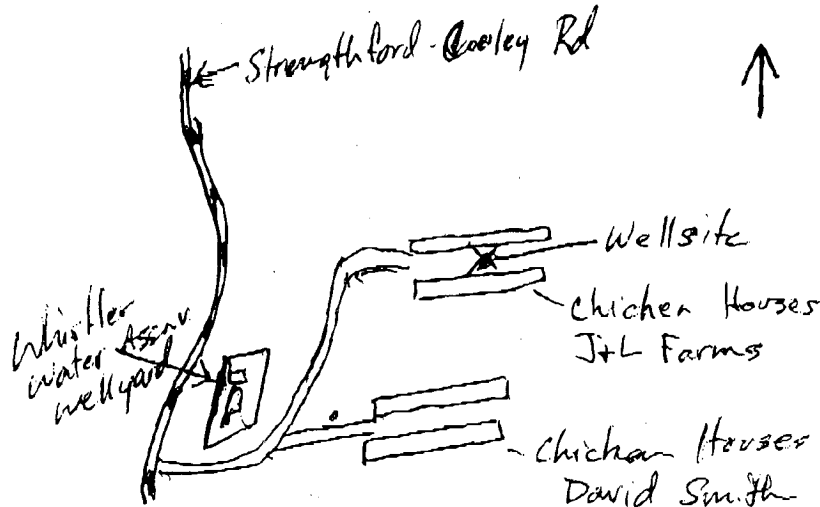 Strengthford-Cooley Rd
Wellsite
Chicken Houses
J+L Farms
Whistler
Water Assn.
Wellyard
Chicken Houses
David Smith